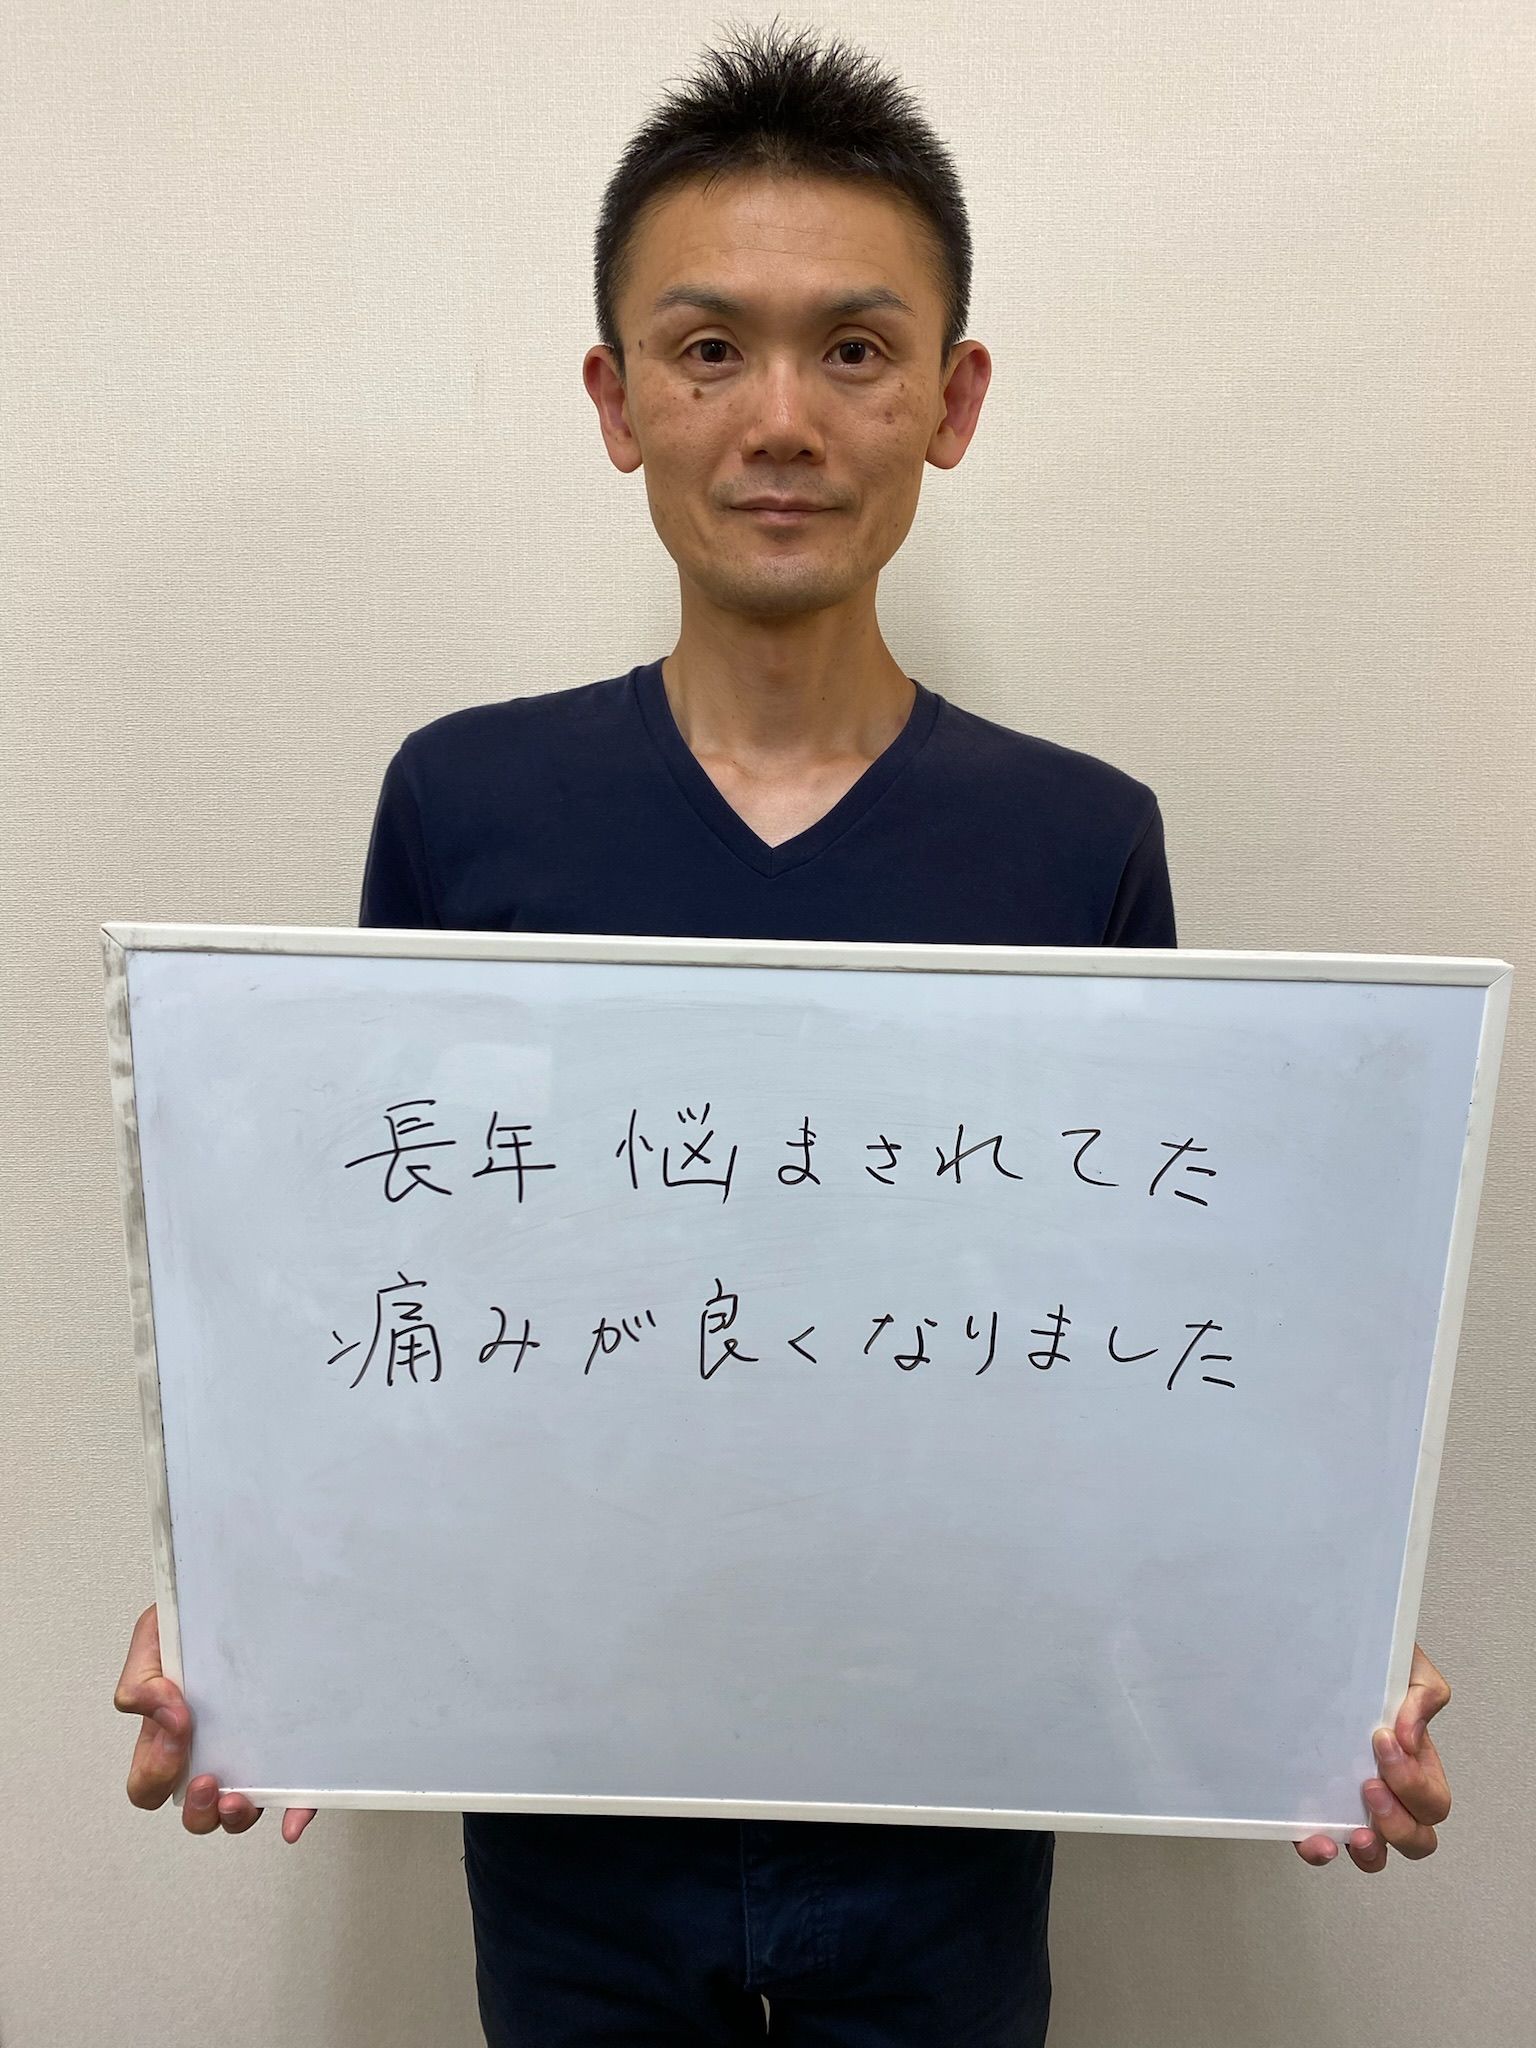 長年悩まされてた
痛みが良くなりました